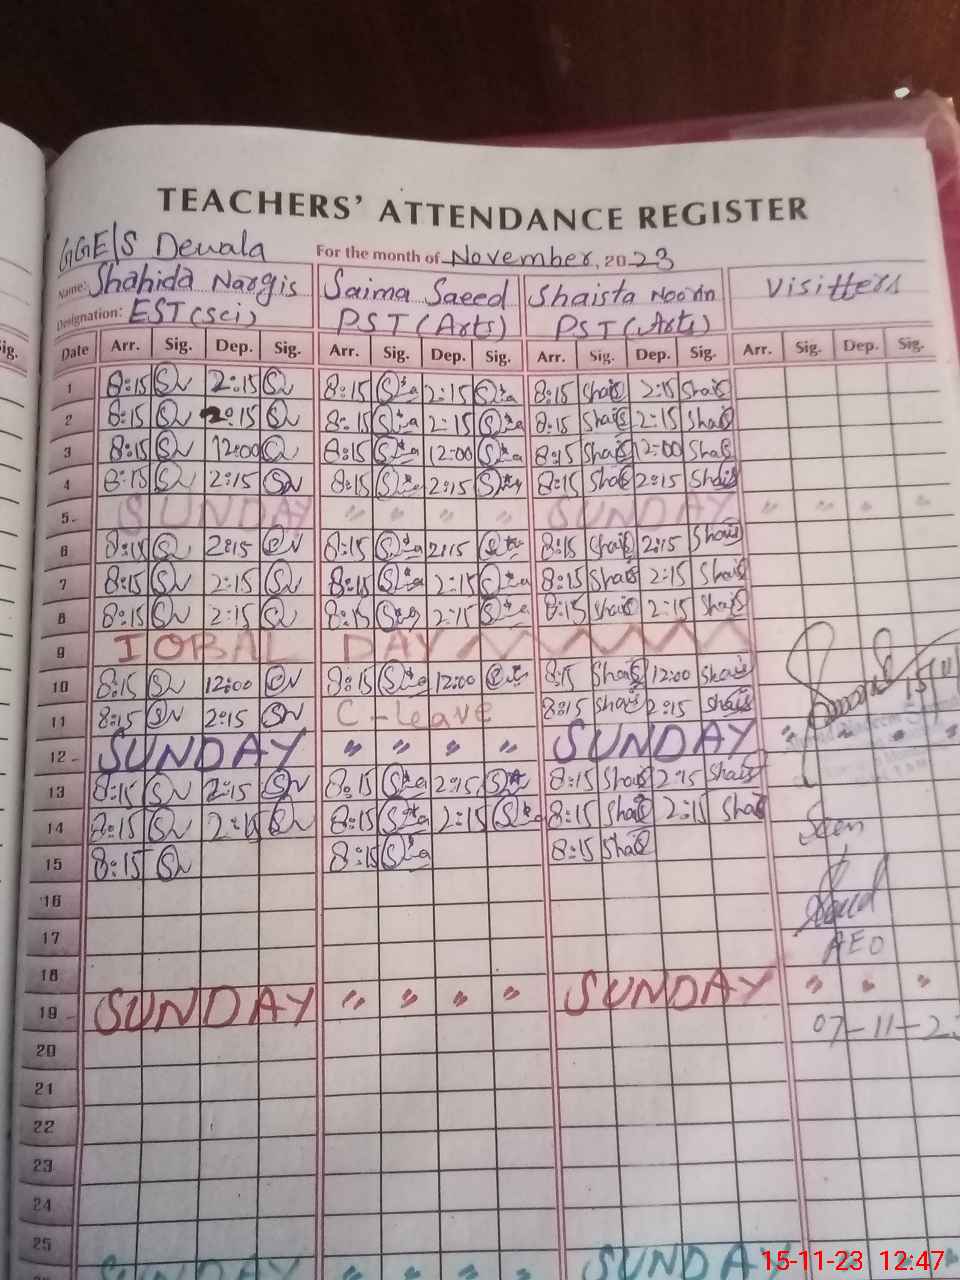 TEACHERS' ATTENDANCE REGISTER
GGE/S Dewala For the month of November, 2023
Name: Shahida Nargis Saima Saeed Shaista Noorin Visitters
Designation: EST (Sci) PST (Arts) PST (Arts)
Sig. Date Arr. Sig. Dep. Sig. Arr. Sig. Dep. Sig. Arr. Sig. Dep. Sig. Arr. Sig. Dep. Sig.
1 8:15 2:15 8:15 2:15 8:15 Shais 2:15 Shais
2 8:15 2:15 8:15 2:15 8:15 Shais 2:15 Shais
3 8:15 12:00 8:15 12:00 8:15 Shais 12:00 Shais
4 8:15 2:15 8:15 2:15 8:15 Shais 2:15 Shais
5 SUNDAY " " " " SUNDAY " " " "
6 8:15 2:15 8:15 2:15 8:15 Shais 2:15 Shais
7 8:15 2:15 8:15 2:15 8:15 Shais 2:15 Shais
8 8:15 2:15 8:15 2:15 8:15 Shais 2:15 Shais
9 IQBAL DAY
10 8:15 12:00 8:15 12:00 8:15 Shais 12:00 Shais
11 8:15 2:15 C-leave 8:15 Shais 2:15 Shais
12 SUNDAY " " " " SUNDAY " " " "
13 8:15 2:15 8:15 2:15 8:15 Shais 2:15 Shais
14 8:15 2:15 8:15 2:15 8:15 Shais 2:15 Shais
Seen
15 8:15 8:15 8:15 Shais
16
17 AEO
18
19 SUNDAY " " " " SUNDAY " " "
07-11-23
20
21
22
23
24
25
SUNDAY " " " " SUNDAY
15-11-23 12:47